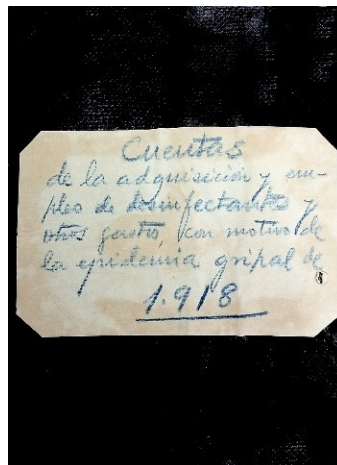 Cuentas
de la adquisición y em-
pleo de desinfectantes y
otros gastos, con motivo de
la epidemia gripal de
1.918